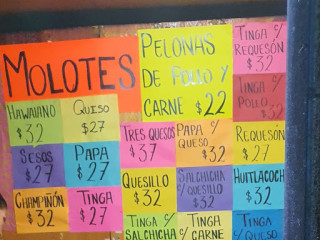 MOLOTES
HAWAIANO
$32
QUESO
$27
SESOS
$27
PAPA
$27
CHAMPIÑÓN
$32
TINGA
$27
PELONAS
DE POLLO Y
CARNE $22
TINGA C/
REQUESÓN
$32
TINGA C/
POLLO
$32
TRES QUESOS
$37
PAPA C/
QUESO
$32
REQUESÓN
$27
QUESILLO
$32
SALCHICHA
C/QUESILLO
$32
HUITLACOCHE
$32
TINGA C/
SALCHICHA
TINGA C/
CARNE
TINGA C/
QUESO